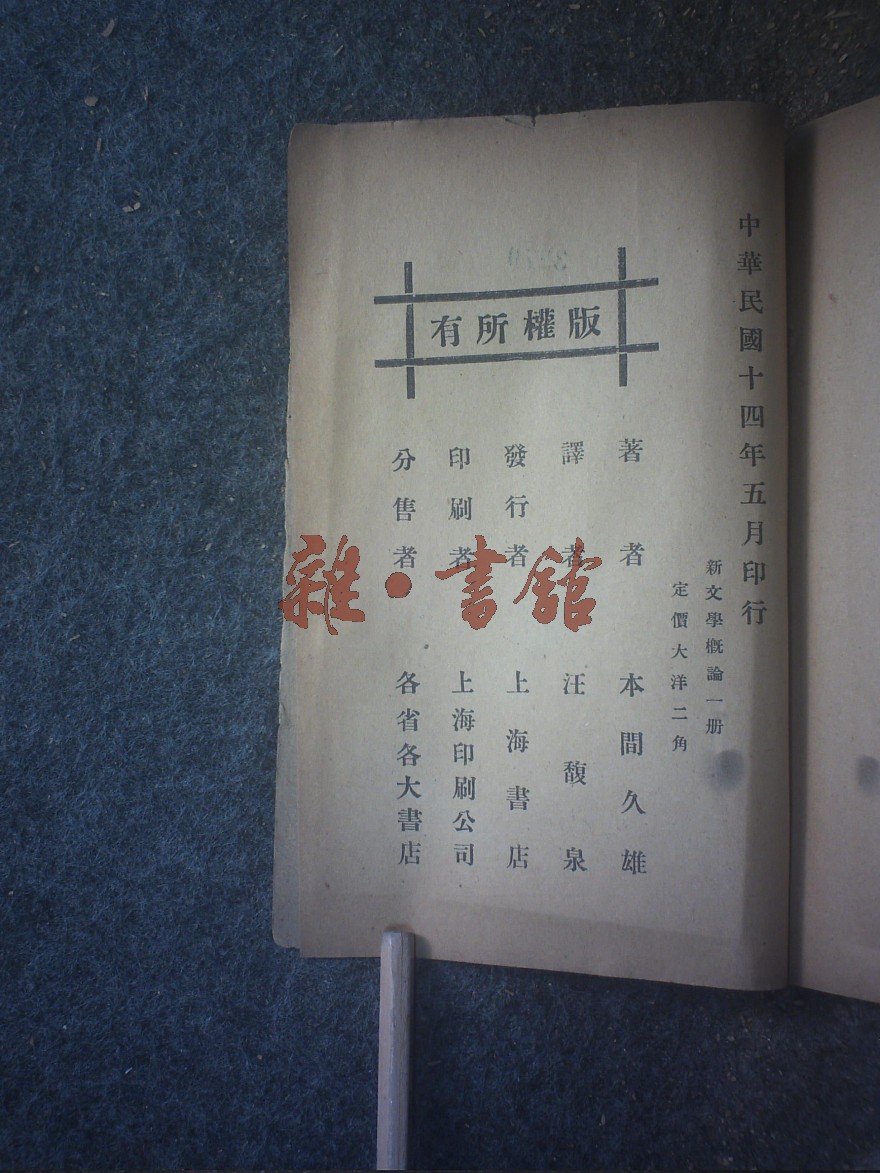 中華民國十四年五月印行
新文學概論一册
定價大洋二角
版權所有
著者 本間久雄
譯者 汪馥泉
發行者 上海書店
印刷者 上海印刷公司
分售者 各省各大書店
雜·書館